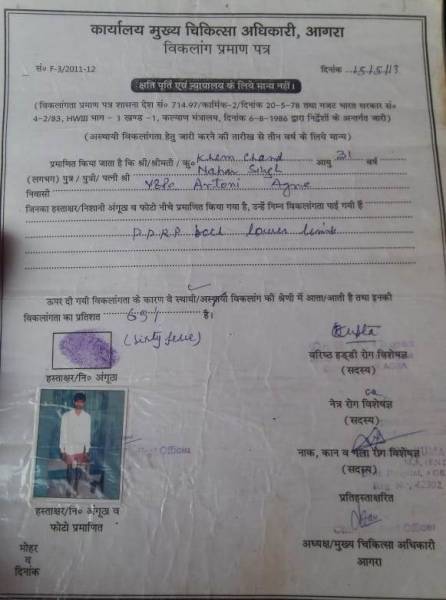 कार्यालय मुख्य चिकित्सा अधिकारी, आगरा
विकलांग प्रमाण पत्र
सं० F-3/2011-12 दिनांक 15/5/13
क्षति पूर्ति एवं न्यायालय के लिये मान्य नहीं।
(विकलांगता प्रमाण पत्र शासना देश सं० 714.97/कार्मिक-2/दिनांक 20-5-78 तथा गजट भारत सरकार सं०
4-2/83, HWIII भाग - 1 खण्ड -1, कल्याण मन्त्रालय, दिनांक 6-8-1986 द्वारा निर्देशों के अन्तर्गत जारी)
(अस्थायी विकलांगता हेतु जारी करने की तारीख से तीन वर्ष के लिये मान्य)
प्रमाणित किया जाता है कि श्री/श्रीमती / कु० Khem Chand आयु 31 वर्ष
(लगभग) पुत्र / पुत्री/ पत्नी श्री Nahar Singh
निवासी V&Po Artoni Agra
जिनका हस्ताक्षर/निशानी अंगूठा व फोटो नीचे प्रमाणित किया गया है, उन्हें निम्न विकलांगता पाई गयी हैं
P.P.R.P. both lower limb
ऊपर दी गयी विकलांगता के कारण वे स्थायी/अस्थायी विकलांग की श्रेणी में आता/आती है तथा इनकी
विकलांगता का प्रतिशत 65% है।
(Sixty five)
Gupta
हस्ताक्षर/नि० अंगूठा
वरिष्ठ हड्डी रोग विशेषज्ञ
(सदस्य)
नेत्र रोग विशेषज्ञ
(सदस्य)
नाक, कान व गला रोग विशेषज्ञ
(सदस्य)
Officer
प्रतिहस्ताक्षरित
हस्ताक्षर/नि० अंगूठा व
फोटो प्रमाणित
अध्यक्ष/मुख्य चिकित्सा अधिकारी
आगरा
मोहर
व
दिनांक